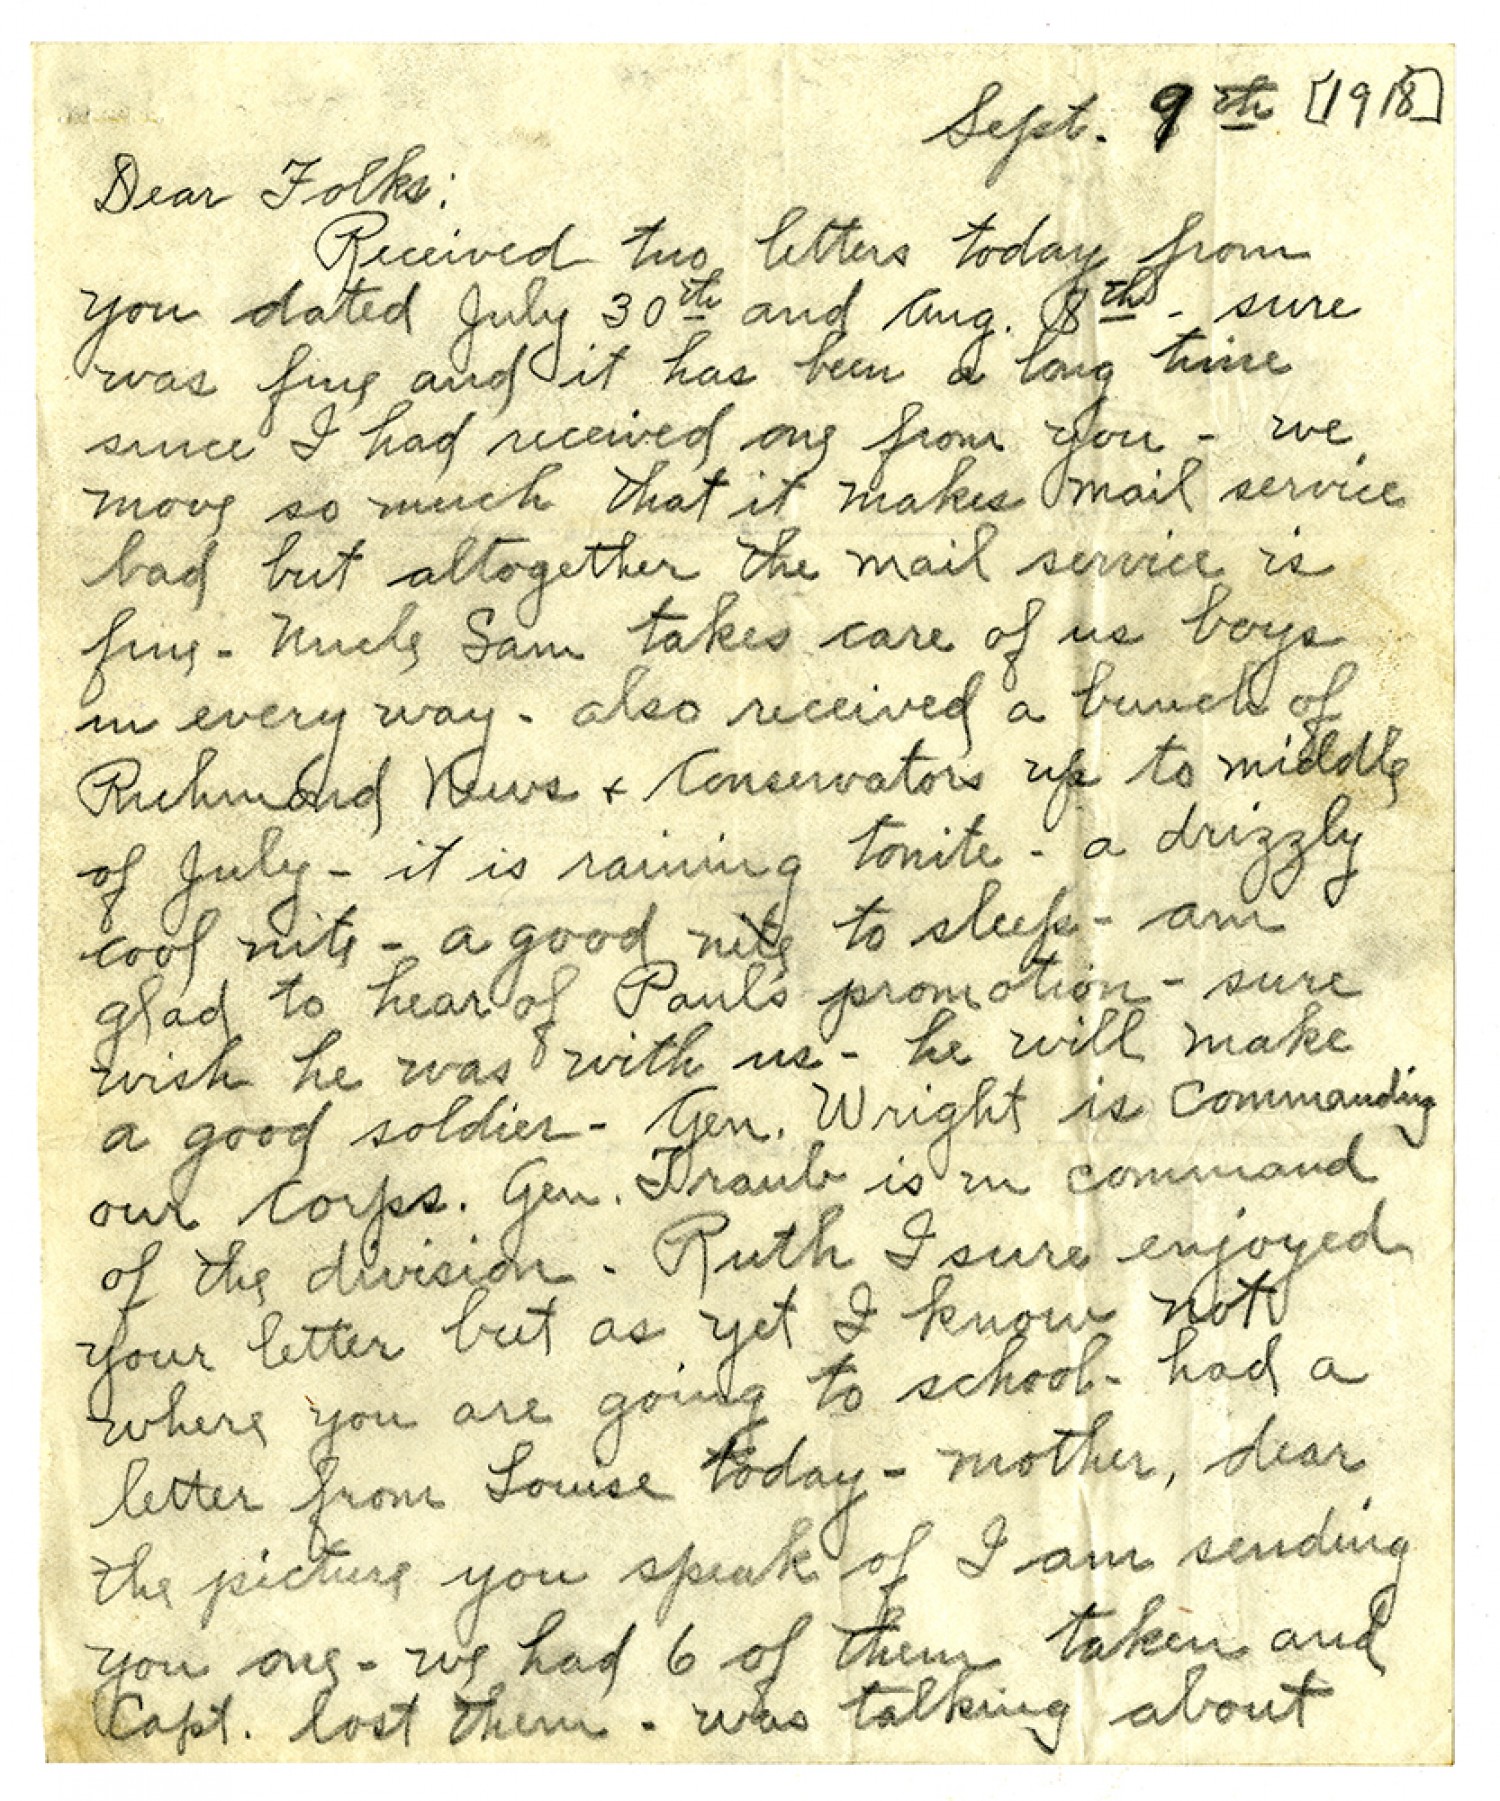 Sept. 9th [1918]
Dear Folks:
Received two letters today from
you dated July 30th and Aug. 8th - sure
was fine and it has been a long time
since I had received one from you - we
move so much that it makes mail service
bad but altogether the mail service is
fine - Uncle Sam takes care of us boys
in every way - also received a bunch of
Richmond News + Conservators up to middle
of July - it is raining tonite - a drizzly
cool nite - a good nite to sleep - am
glad to hear of Paul's promotion - sure
wish he was with us - he will make
a good soldier - Gen. Wright is commanding
our Corps. Gen. Traub is in command
of the division - Ruth I sure enjoyed
your letter but as yet I know not
where you are going to school - had a
letter from Louise today - mother, dear
the picture you speak of I am sending
you one - we had 6 of them taken and
Capt. lost them - was talking about